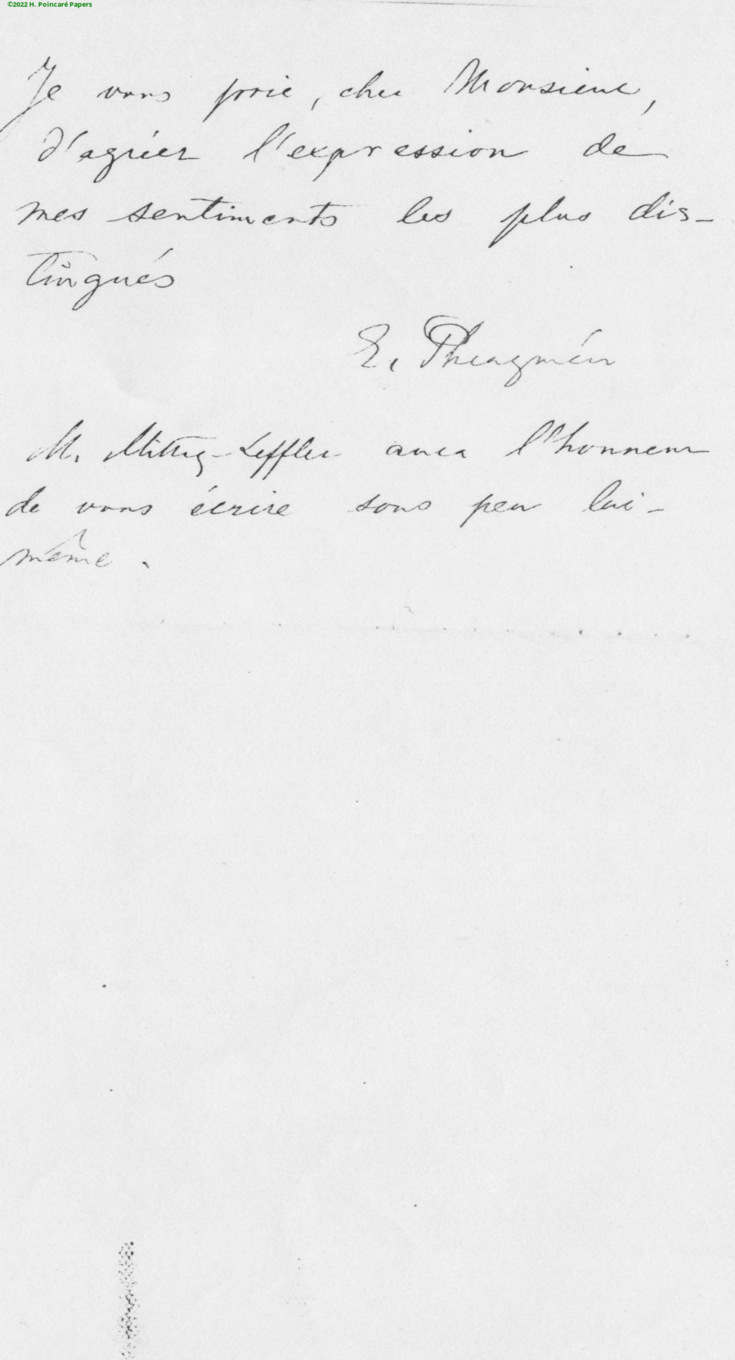 ©2022 H. Poincaré Papers
Je vous prie, cher Monsieur,
d'agréer l'expression de
mes sentiments les plus dis-
tingués
E. Phragmén
M. Mittag-Leffler aura l'honneur
de vous écrire sous peu lui-
même.